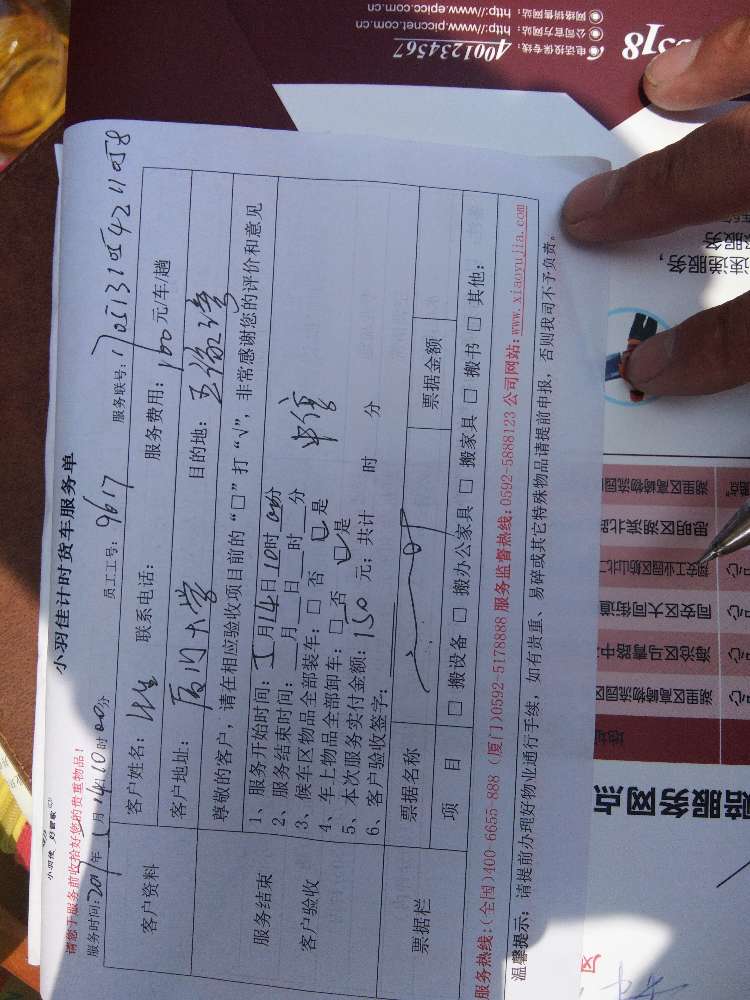 小羽佳计时货车服务单
小羽佳 好管家
请您于服务前收拾好您的贵重物品！
服务时间: 2017年5月14日10时00分 员工工号: 9617 服务联号: 170513105424211058
客户资料
客户姓名: 联系电话: 服务费用: 100 元/车/趟
客户地址: 厦门大学 目的地: 五缘湾
服务结束
客户验收
尊敬的客户，请在相应验收项目前的“□”打“√”，非常感谢您的评价和意见
1、服务开始时间: 5月14日10时00分
2、服务结束时间: 月 日 时 分
3、候车区物品全部装车: □ 否 是
4、车上物品全部卸车: □ 否 是
5、本次服务实付金额: 150 元；共计 时 分
6、客户验收签字:
票据栏
票据名称 票据金额
项 目 □ 搬设备 □ 搬办公家具 □ 搬家具 □ 搬书 □ 其他:
服务热线:(全国)400-6655-888 (厦门)0592-5178888 服务监督热线:0592-5888123 公司网站:www.xiaoyujia.com
温馨提示: 请提前办理好物业通行手续，如有贵重、易碎或其它特殊物品请提前申报，否则我司不予负责。
电话投保专线: 4001234567
公司官方网站: http://www.piccnet.com.cn
网络销售网站: http://www.epicc.com.cn
服务网点
地址
湖里区高崎物流园
同安区大同街道